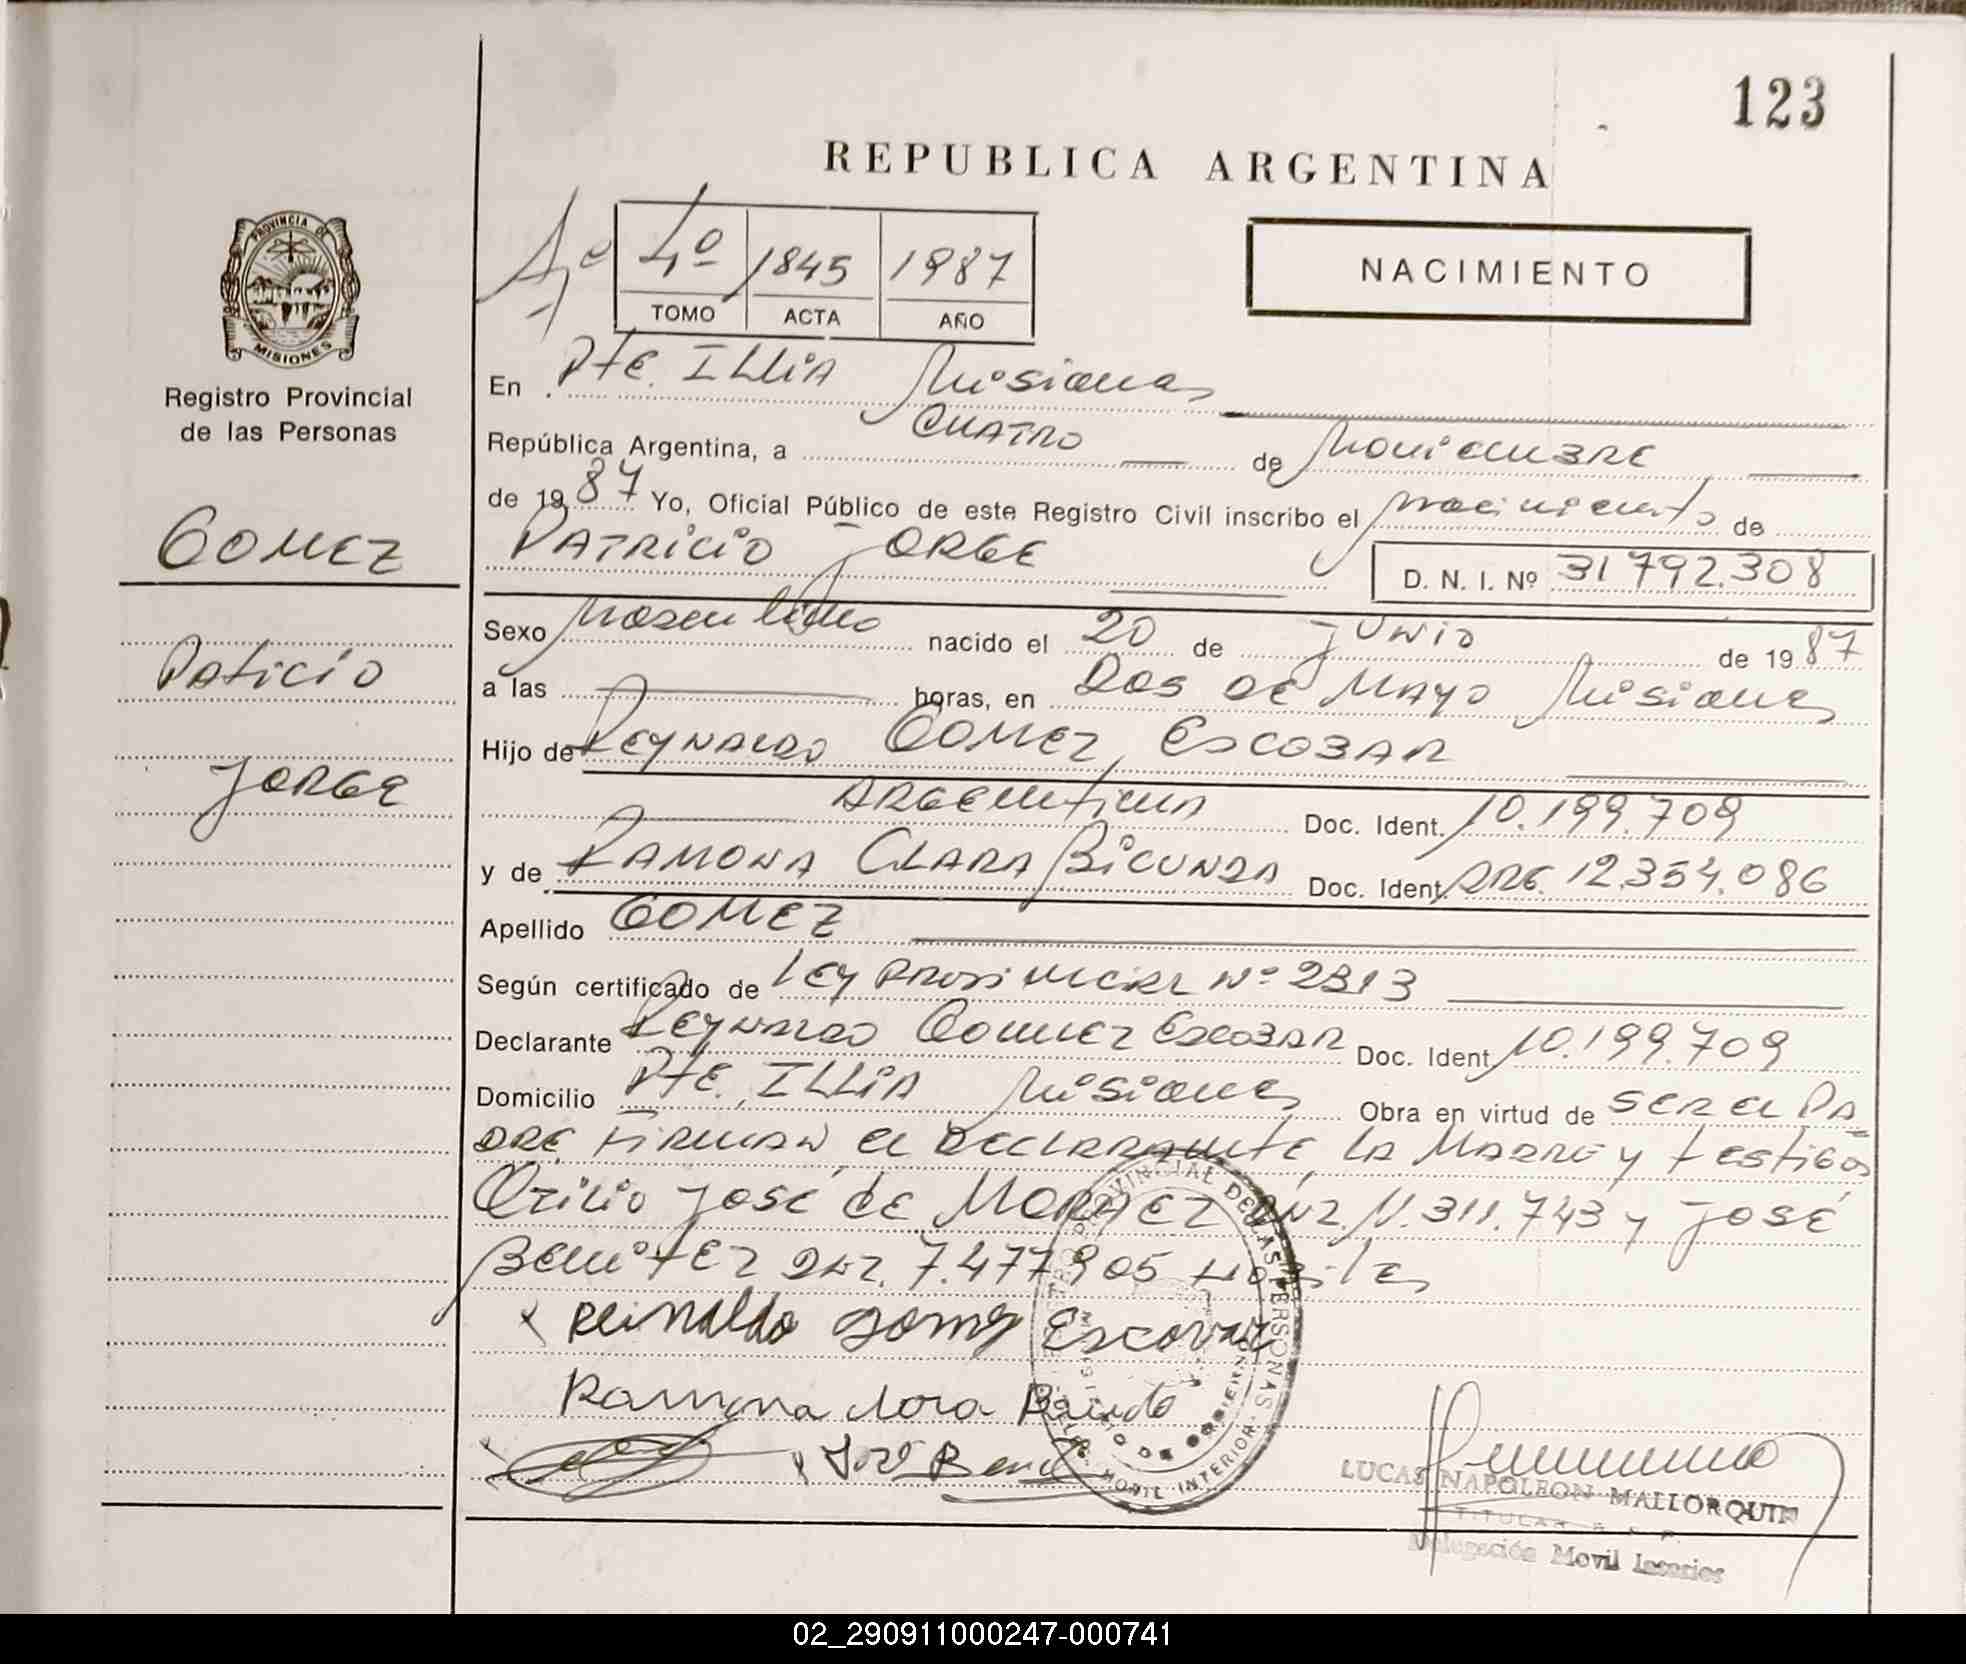 123
REPUBLICA ARGENTINA
4º 1845 1987
TOMO ACTA AÑO
NACIMIENTO
PROVINCIA DE
MISIONES
Registro Provincial
de las Personas
GOMEZ
Paticio
Jorge
En Pte. ILLIA Misiones
República Argentina, a CUATRO de Noviembre
de 1987 Yo, Oficial Público de este Registro Civil inscribo el nacimiento de
PATRICIO JORGE D. N. I. Nº 31792.308
Sexo Masculino nacido el 20 de JUNIO de 1987
a las horas, en Dos de Mayo Misiones
Hijo de Reynaldo GOMEZ Escobar
Argentina Doc. Ident. 10.199.709
y de RAMONA CLARA Doc. Ident. ARG. 12.354.086
Apellido GOMEZ
Según certificado de Ley Provincial Nº 2313
Declarante Reynaldo Gomez Escobar Doc. Ident. 10.199.709
Domicilio Pte. ILLIA Misiones Obra en virtud de ser el PA
DRE Firman el DECLARANTE, la Madre y testigos
José de y José
Benitez 7.477.905
x Reinaldo gomez Escovar
Ramona
x x José
REGISTRO PROVINCIAL DE LAS PERSONAS
MOVIL INTERIOR
LUCAS NAPOLEON MALLORQUIN
TITULAR
Delegación Movil Interior
02_290911000247-000741